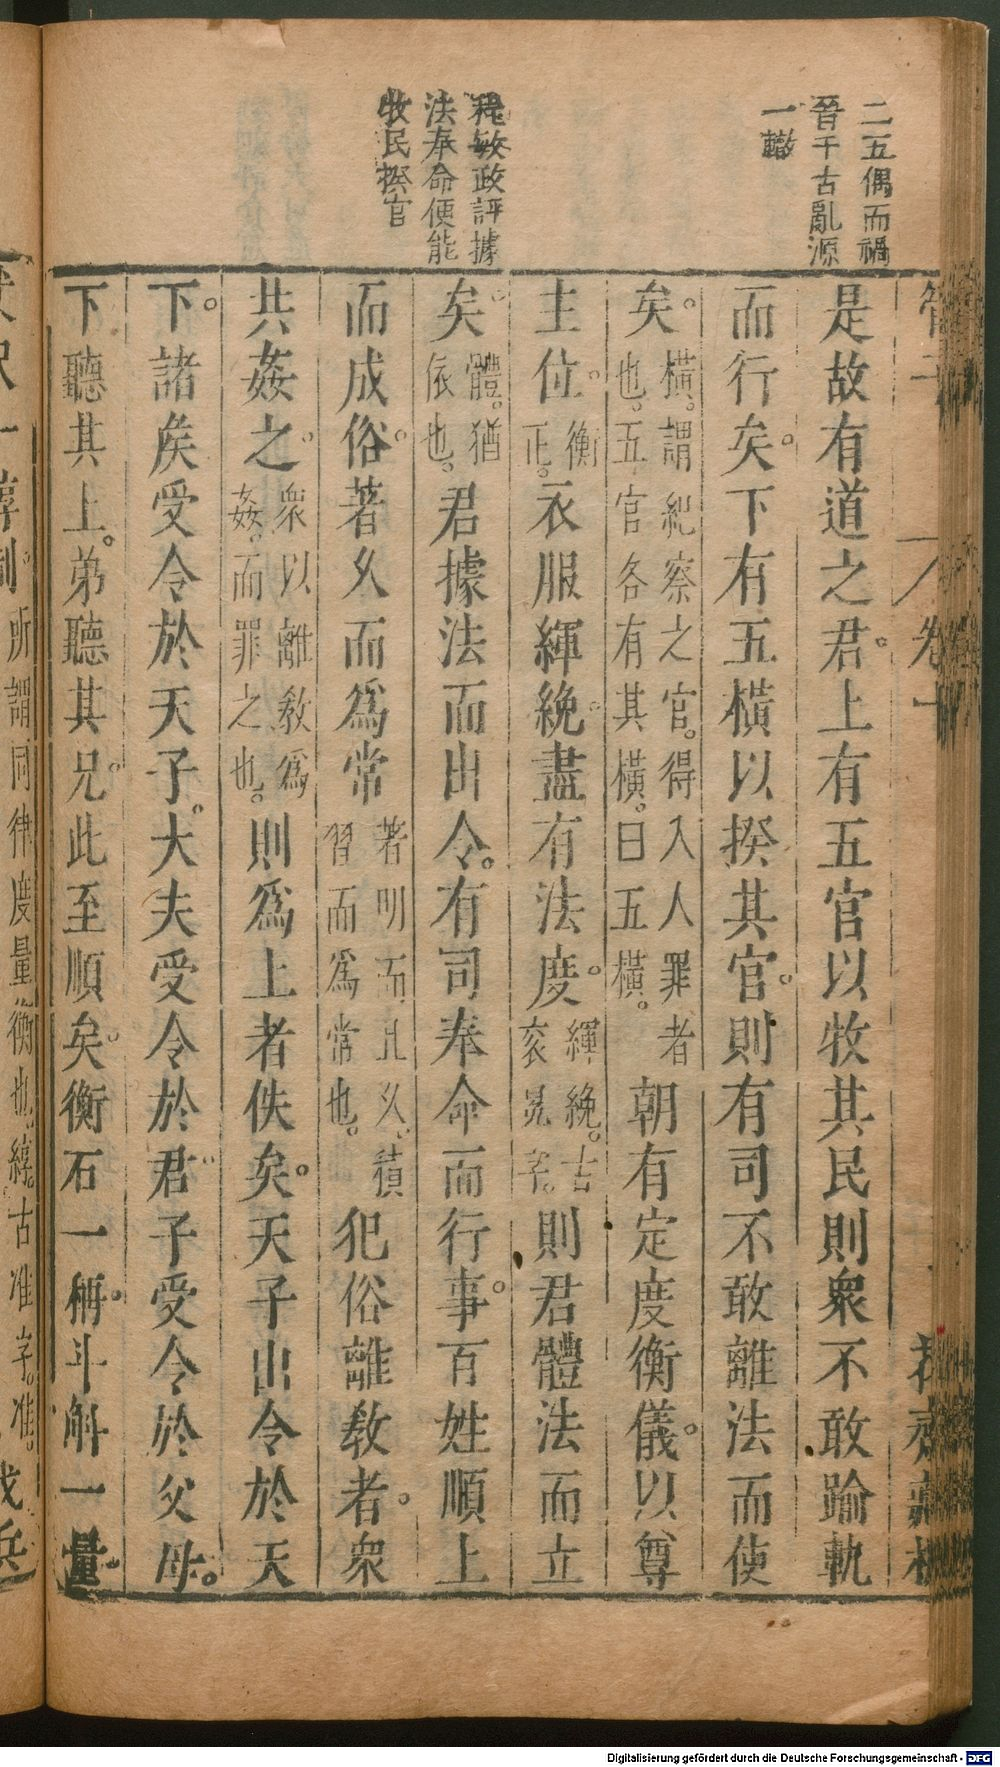 二五偶而禍
晉千古亂源
一轍
程敏政評據
法奉命便能
牧民揆官
管子
卷十
是故有道之君。上有五官以牧其民則衆不敢踰軌
而行矣。下有五橫以揆其官。則有司不敢離法而使
矣。橫。謂紀察之官。得入人罪者
也。五官各有其橫。曰五橫。朝有定度衡儀。以尊
主位。衡
正。衣服緷絻盡有法度。緷絻。古
衮冕字。則君體法而立
矣。體。猶
依也。君據法而出令。有司奉命而行事。百姓順上
而成俗。著久而為常著明而且久。積
習而為常也。犯俗離敎者。衆
共姦之。衆以離敎為
姦。而罪之也。則為上者佚矣。天子出令於天
下。諸矦受令於天子。大夫受令於君。子受令於父母。
下聽其上。弟聽其兄。此至順矣。衡石一稱。斗斛一量。
制。所謂同律度量衡也。綧。古准字。准。戈兵
Digitalisierung gefördert durch die Deutsche Forschungsgemeinschaft - DFG